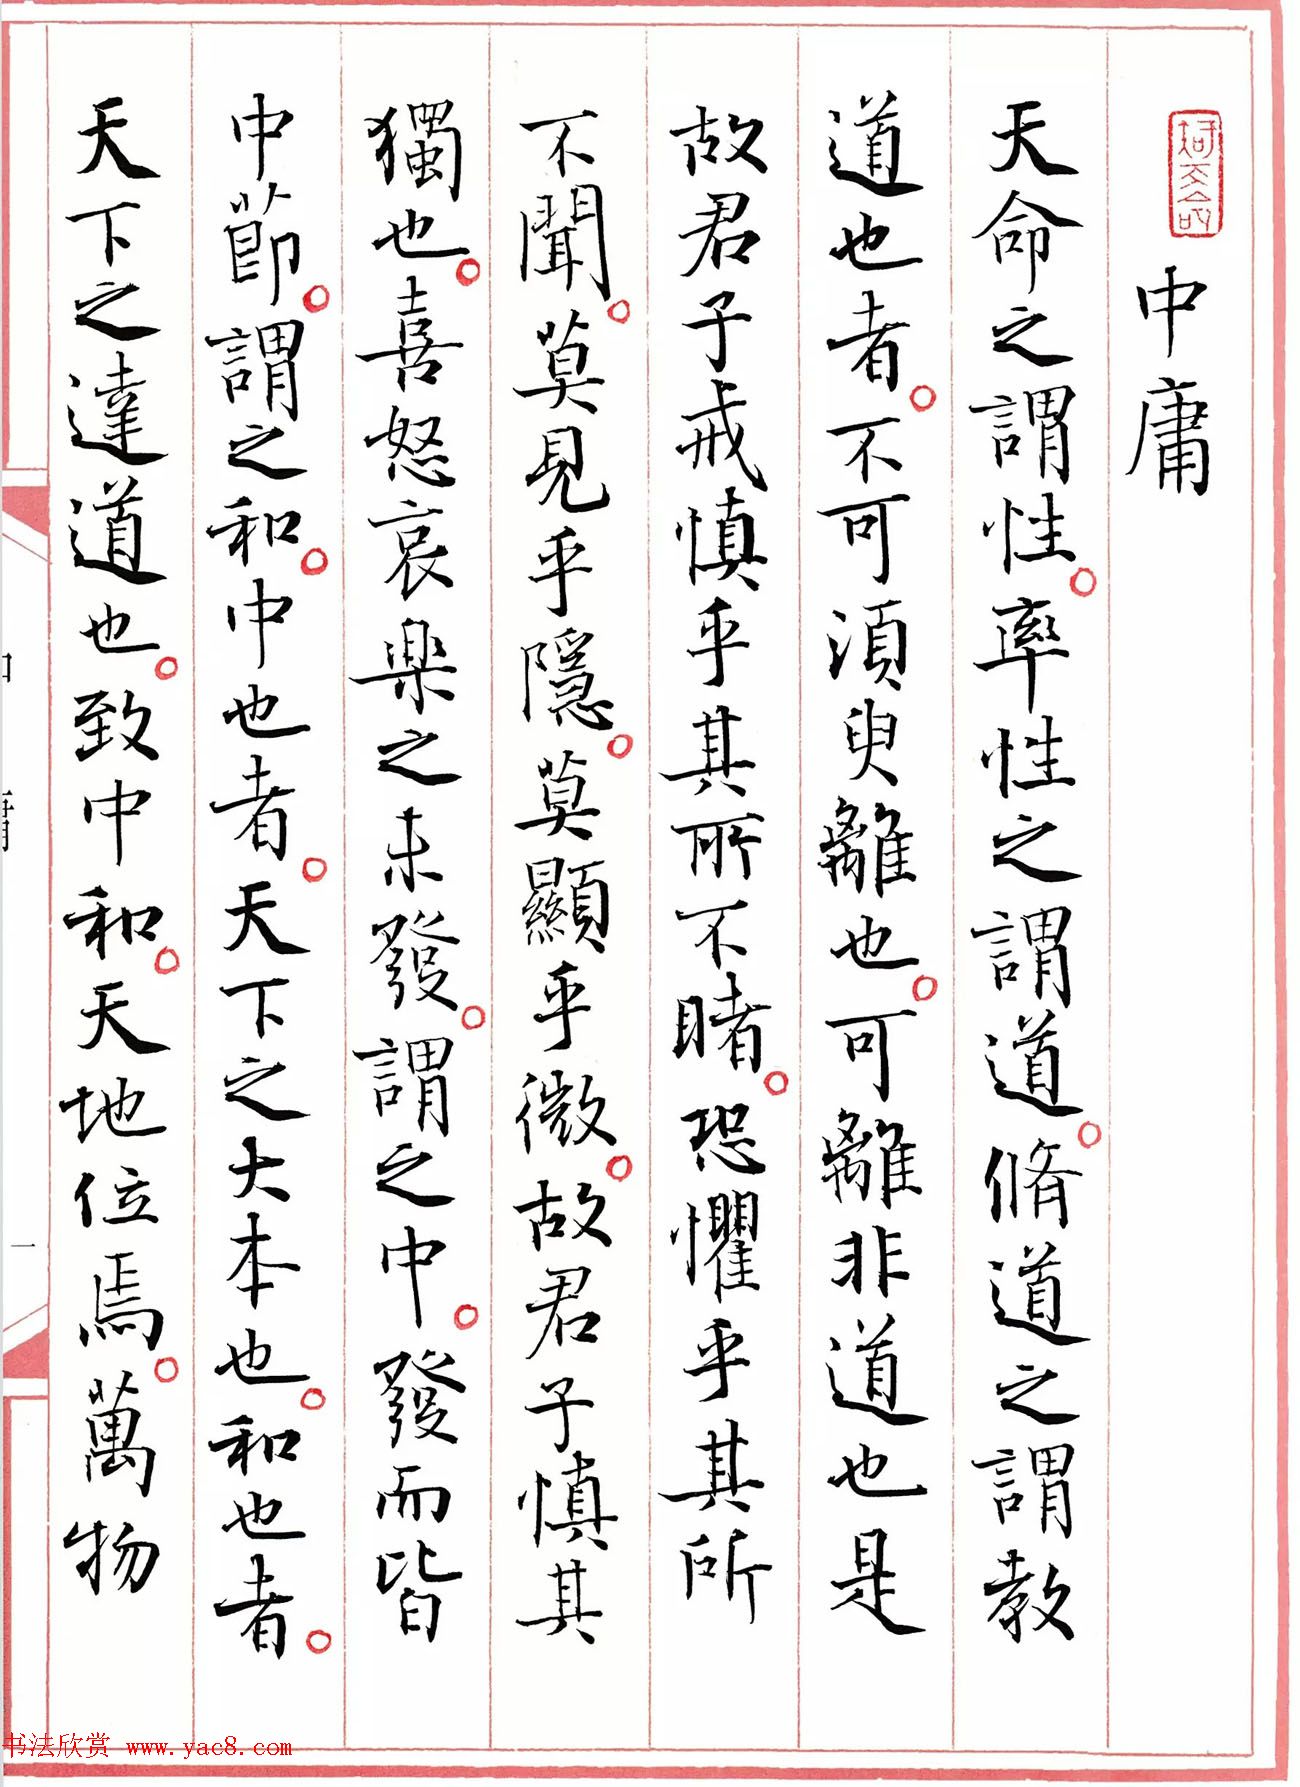 中庸
天命之謂性。率性之謂道。脩道之謂教
道也者。不可須臾離也。可離非道也是
故君子戒慎乎其所不睹。恐懼乎其所
不聞。莫見乎隱。莫顯乎微。故君子慎其
獨也。喜怒哀樂之未發。謂之中。發而皆
中節。謂之和。中也者。天下之大本也。和也者。
天下之達道也。致中和。天地位焉。萬物
一
书法欣赏 www.yac8.com